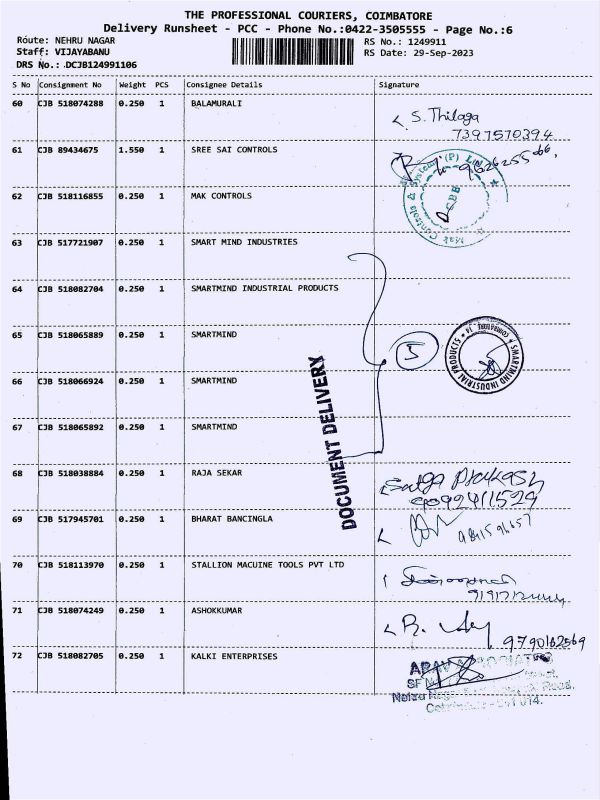 THE PROFESSIONAL COURIERS, COIMBATORE
Delivery Runsheet - PCC - Phone No.:0422-3505555 - Page No.:6
Route: NEHRU NAGAR RS No.: 1249911
Staff: VIJAYABANU RS Date: 29-Sep-2023
DRS No.: DCJB124991106
S No Consignment No Weight PCS Consignee Details Signature
60 CJB 518074288 0.250 1 BALAMURALI
S. Thilaga
7397570394
61 CJB 89434675 1.550 1 SREE SAI CONTROLS
62 CJB 518116855 0.250 1 MAK CONTROLS
Mak Controls & Systems (P) Ltd
63 CJB 517721907 0.250 1 SMART MIND INDUSTRIES
64 CJB 518082704 0.250 1 SMARTMIND INDUSTRIAL PRODUCTS
65 CJB 518065889 0.250 1 SMARTMIND
5
SMARTMIND INDUSTRIAL PRODUCTS
66 CJB 518066924 0.250 1 SMARTMIND
67 CJB 518065892 0.250 1 SMARTMIND
DOCUMENT DELIVERY
68 CJB 518038884 0.250 1 RAJA SEKAR
69 CJB 517945701 0.250 1 BHARAT BANCINGLA
70 CJB 518113970 0.250 1 STALLION MACUINE TOOLS PVT LTD
71 CJB 518074249 0.250 1 ASHOKKUMAR
9790162569
72 CJB 518082705 0.250 1 KALKI ENTERPRISES